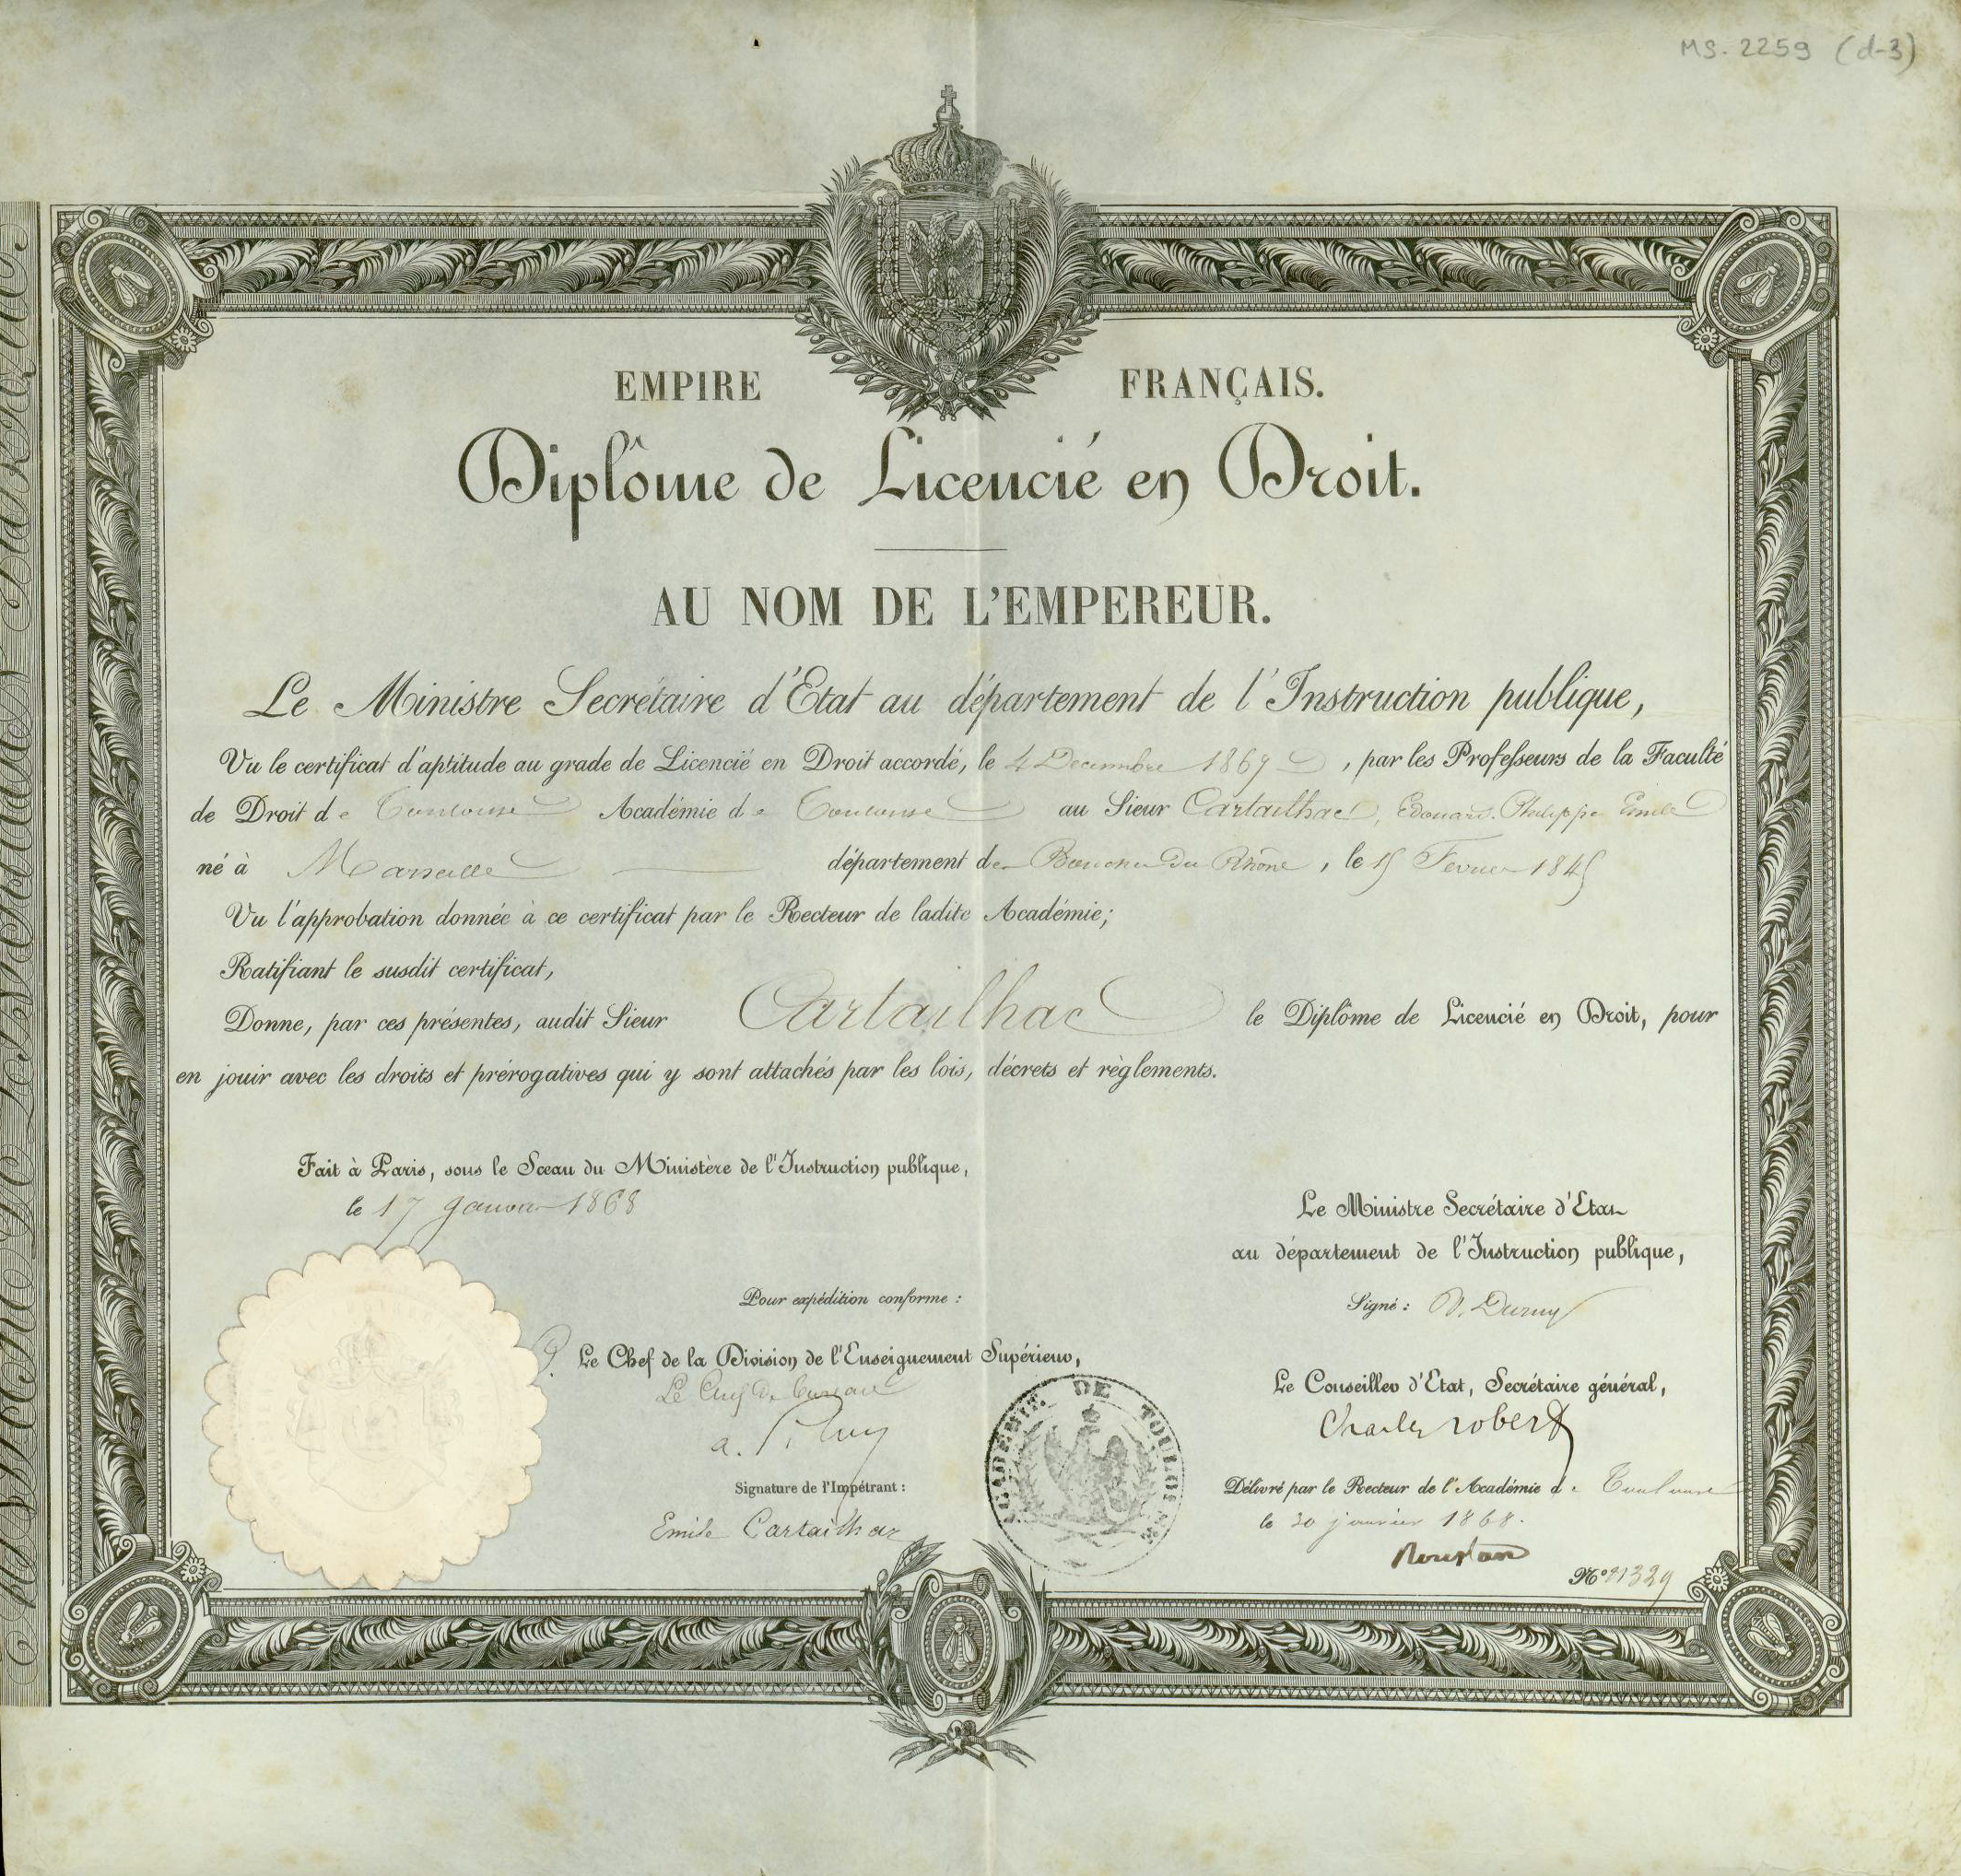 MS. 2259 (d-3)
EMPIRE FRANÇAIS.
Diplôme de Licencié en Droit.
AU NOM DE L'EMPEREUR.
Le Ministre Secrétaire d'Etat au département de l'Instruction publique,
Vu le certificat d'aptitude au grade de Licencié en Droit accordé, le 4 Decembre 1867, par les Professeurs de la Faculté
de Droit de Toulouse Académie de Toulouse au Sieur Cartailhac, Edouard Philippe Emile
né à Marseille département des Bouches du Rhône, le 15 Fevrier 1845
Vu l'approbation donnée à ce certificat par le Recteur de ladite Académie;
Ratifiant le susdit certificat,
Donne, par ces présentes, audit Sieur Cartailhac le Diplôme de Licencié en Droit, pour
en jouir avec les droits et prérogatives qui y sont attachés par les lois, décrets et règlements.
Fait à Paris, sous le Sceau du Ministère de l'Instruction publique,
le 17 Janvier 1868
Le Ministre Secrétaire d'Etat
au département de l'Instruction publique,
Signé : V. Duruy
Pour expédition conforme :
P. Le Chef de la Division de l'Enseignement Supérieur,
Le Chef de bureau
Le Conseiller d'Etat, Secrétaire général,
Charles robert
Signature de l'Impétrant :
Emile Cartailhac
ACADEMIE DE TOULOUSE
Délivré par le Recteur de l'Académie de Toulouse
le 30 janvier 1868.
Roustan